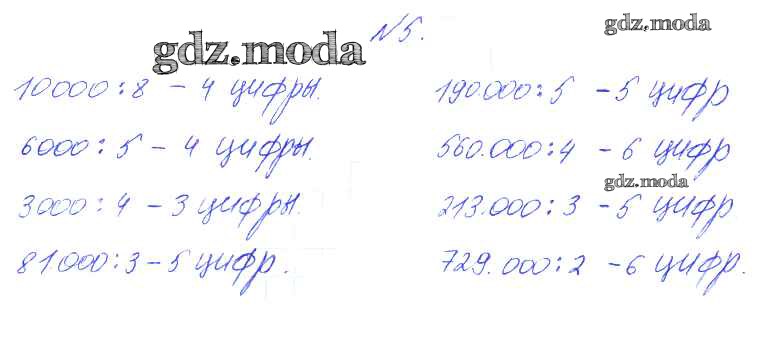 №5.
gdz.moda
gdz.moda
10000:8 – 4 цифры.
190.000:5 – 5 цифр
6000:5 – 4 цифры.
560.000:4 – 6 цифр
gdz.moda
3000:4 – 3 цифры.
213.000:3 – 5 цифр
81.000:3 – 5 цифр.
729.000:2 – 6 цифр.